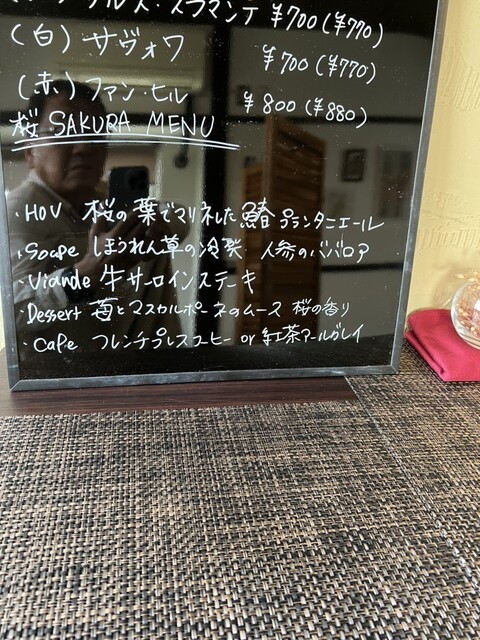 スプマンテ ¥700(¥770)
(白) サヴォワ ¥700(¥770)
(赤) ファン・ヒル ¥800(¥880)
桜 SAKURA MENU
・HOV 桜の葉でマリネした鰆 プランタニエール
・Soape ほうれん草の冷製 人参のババロア
・Viande 牛サーロインステーキ
・Dessert 苺とマスカルポーネのムース 桜の香り
・Cafe フレンチプレスコーヒー or 紅茶アールグレイ